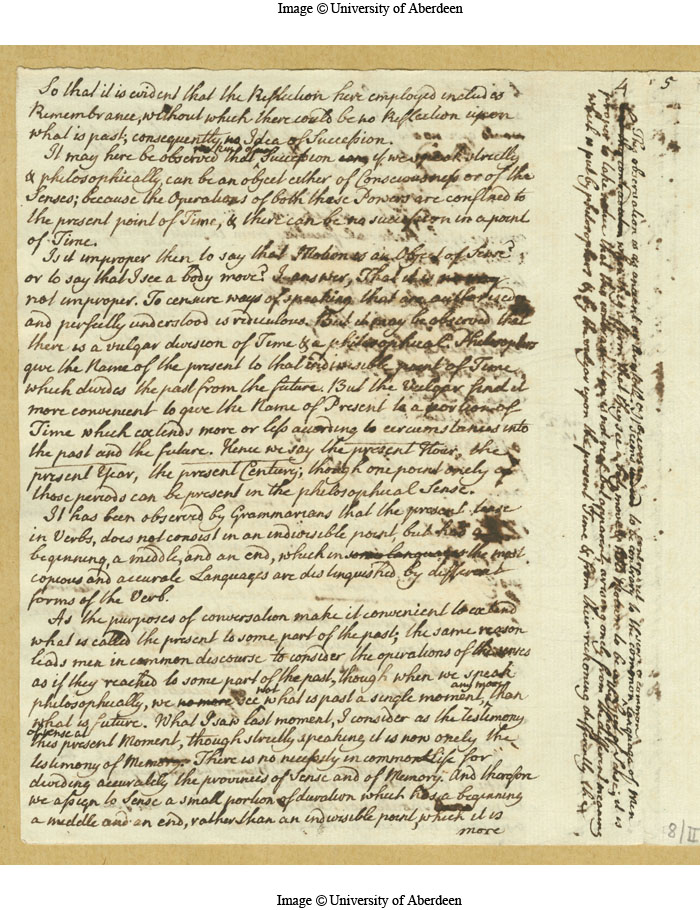 Image © University of Aberdeen
4 5
So that it is evident that the Reflection here employed includes
Remembrance, without which there could be no Reflection upon
what is past; consequently no Idea of Succession.
It may here be observed that Succession if we speak strictly
& philosophically, can be an object either of Consciousness or of the
Senses; because the Operations of both these Powers are confined to
the present point of Time, & there can be no succession in a point
of Time.
Is it improper then to say that Motion is an Object of Sense?
or to say that I see a body move? I answer, That it is no way
not improper. To censure ways of speaking that are authorised
and perfectly understood is ridiculous. But it may be observed that
there is a vulgar division of Time & a philosophical. Philosophers
give the Name of the present to that indivisible point of Time
which divides the past from the future. But the Vulgar find it
more convenient to give the Name of Present to a portion of
Time which extends more or less according to circumstances into
the past and the future. Hence we say the present Hour, the
present Year, the present Century; though one point onely of
those periods can be present in the philosophical Sense.
It has been observed by Grammarians that the present tense
in Verbs, does not consist in an indivisible point but has a
beginning, a middle, and an end, which in some languages the most
copious and accurate Languages are distinguished by different
forms of the Verb.
As the purposes of conversation make it convenient to extend
what is called the present to some part of the past; the same reason
leads men in common discourse to consider the operations of the senses
as if they reached to some part of the past, though when we speak
any more
philosophically, we no more see not what is past a single moment, than
what is future. What I saw last moment, I consider as the testimony
of sense at
this present Moment, though strictly speaking it is now onely the
testimony of Memory. There is no necessity in common Life for
dividing accurately the provinces of Sense and of Memory. And therefore
we assign to Sense a small portion of duration which has a beginning
a middle and an end, rather than an indivisible point, which it is
more
This observation is as ancient as
to be contrary to the common language of Men
when they affirm that they see a body move & Motion to be an object of Sense; it is
proper to take notice that this contradiction is not real but apparent, arising onely from the different meaning
which is put by philosophers & by the vulgar upon the present Time & from their reckoning differently the
8/II
Image © University of Aberdeen